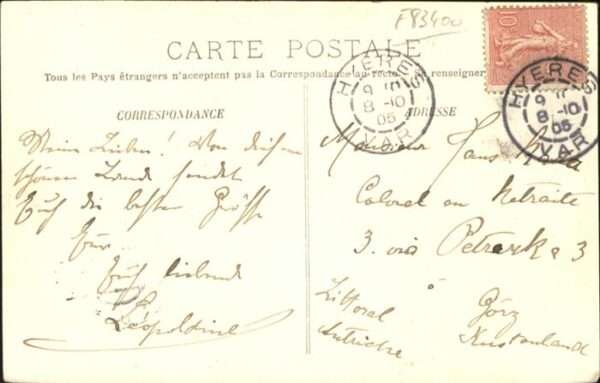 F83400
CARTE POSTALE
Tous les Pays étrangers n'acceptent pas la Correspondance au recto, se renseigner
CORRESPONDANCE
ADRESSE
10
HYERES
9
8-10
05
VAR
HYERES
9
8-10
05
VAR
Meine Lieben! Von diesem
schönen Lande sendet
Euch die besten Grüsse
Eure
Euch liebende
Léopoldine
Monsieur Hans
Colonel en Retraite
3. via Petrarka 3
Görz
Küstenland
Littoral
Autriche